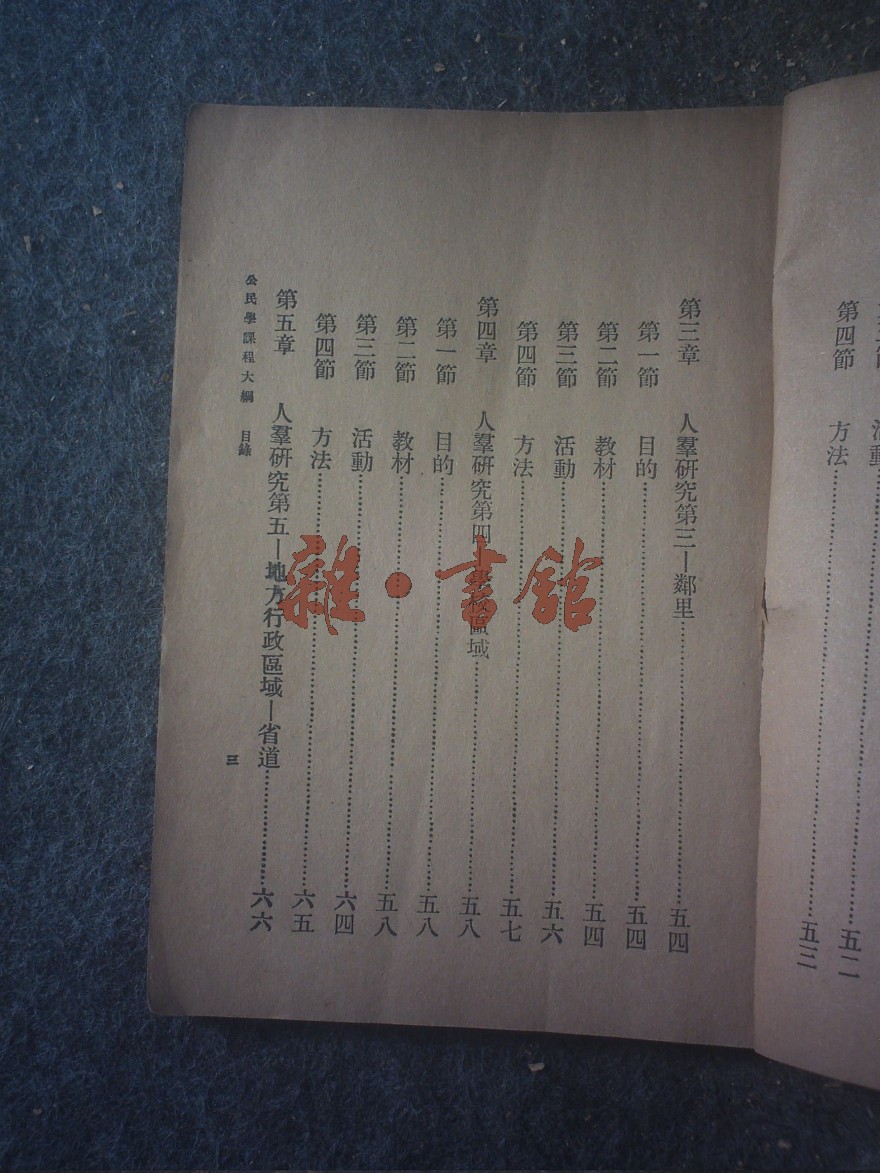 五二
第四節 方法……五三
第三章 人羣研究第三—鄰里……五四
第一節 目的……五四
第二節 教材……五四
第三節 活動……五六
第四節 方法……五七
第四章 人羣研究第四—學校區域……五八
第一節 目的……五八
第二節 教材……五八
第三節 活動……六四
第四節 方法……六五
第五章 人羣研究第五—地方行政區域—省道……六六
公民學課程大綱 目錄
三
雜·書館